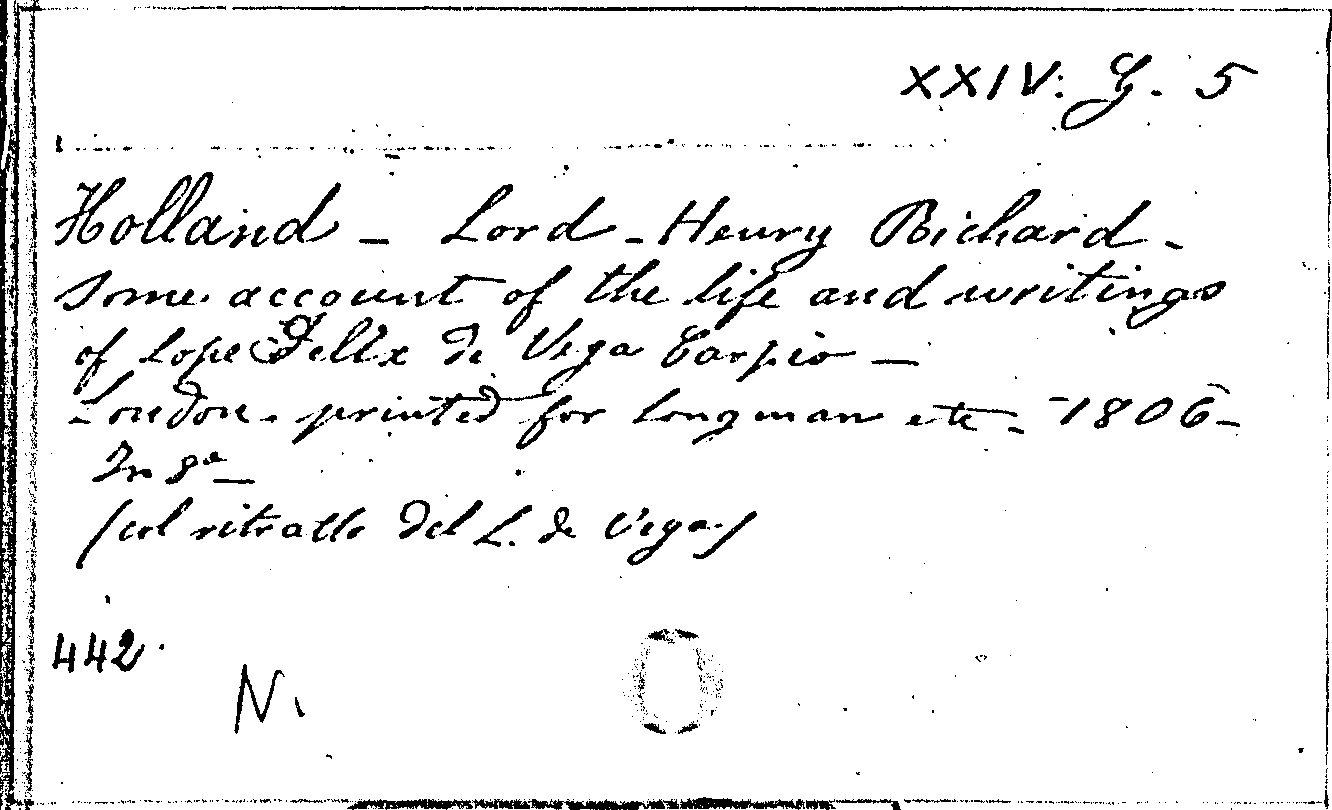 XXIV. G. 5
Holland - Lord - Henry Richard -
Some account of the life and writings
of Lope Felix de Vega Carpio -
London - printed for Longman etc - 1806 -
In 8° -
(col ritratto del L. de Vega)
442.
N.